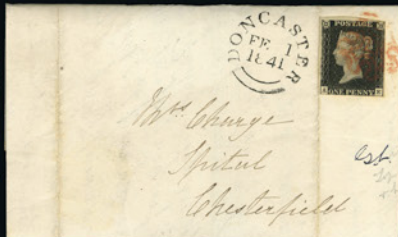 DONCASTER
FE 1
1841
POSTAGE
ONE PENNY
Mrs Charge
Spital
Chesterfield